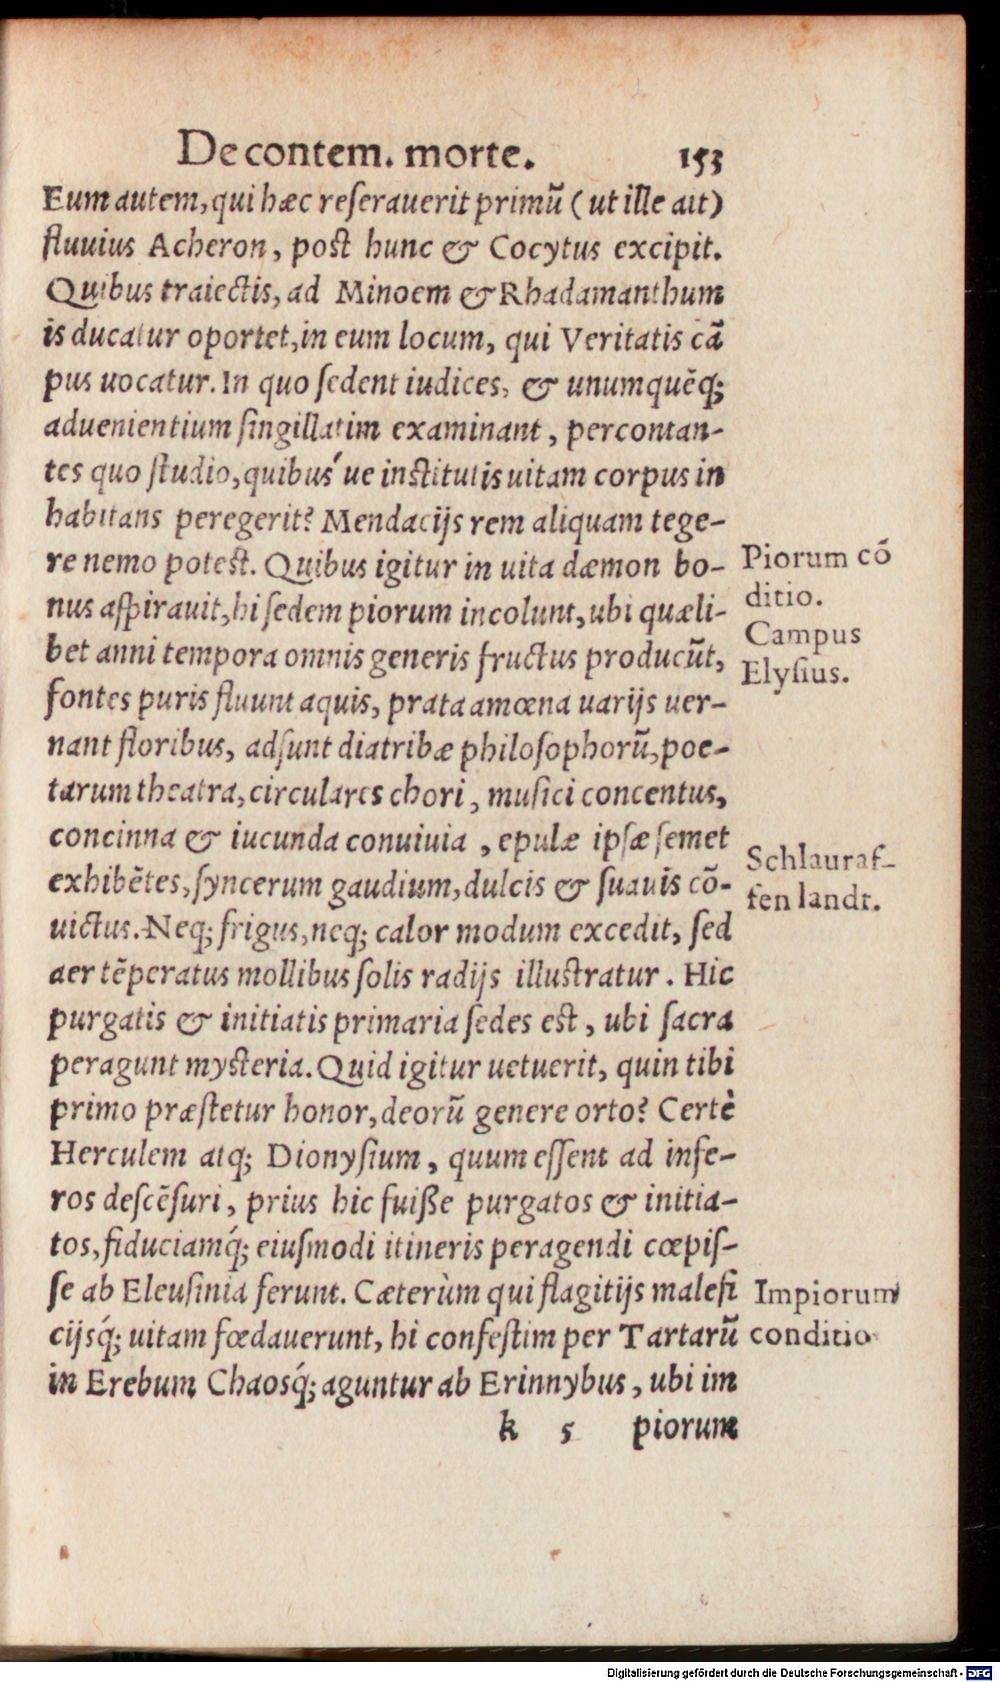 De contem. morte. 153
Eum autem, qui hæc reserauerit primũ (ut ille ait)
fluuius Acheron, post hunc & Cocytus excipit.
Quibus traiectis, ad Minoem & Rhadamanthum
is ducatur oportet, in eum locum, qui Veritatis cā
pus uocatur. In quo sedent iudices, & unumquẽq;
aduenientium singillatim examinant, percontan-
tes quo studio, quibus´ue institutis uitam corpus in
habitans peregerit? Mendacijs rem aliquam tege-
re nemo potest. Quibus igitur in uita dæmon bo-
nus aspirauit, hi sedem piorum incolunt, ubi quæli-
bet anni tempora omnis generis fructus producũt,
fontes puris fluunt aquis, prata amœna uarijs uer-
nant floribus, adsunt diatribæ philosophorũ, poe-
tarum theatra, circulares chori, musici concentus,
concinna & iucunda conuiuia, epulæ ipsæ semet
exhibẽtes, syncerum gaudium, dulcis & suauis cõ-
uictus. Neq; frigus, neq; calor modum excedit, sed
aer tẽperatus mollibus solis radijs illustratur. Hic
purgatis & initiatis primaria sedes est, ubi sacra
peragunt mysteria. Quid igitur uetuerit, quin tibi
primo præstetur honor, deorũ genere orto? Certè
Herculem atq; Dionysium, quum essent ad infe-
ros descẽsuri, prius hic fuiße purgatos & initia-
tos, fiduciamq́; eiusmodi itineris peragendi cœpis-
se ab Eleusinia ferunt. Cæterùm qui flagitijs malefi
cijsq́; uitam fœdauerunt, hi confestim per Tartarũ
in Erebum Chaosq́; aguntur ab Erinnybus, ubi im
k 5 piorum
Piorum cõ
ditio.
Campus
Elysius.
Schlauraf-
fen landt.
Impiorum
conditio
Digitalisierung gefördert durch die Deutsche Forschungsgemeinschaft - DFG